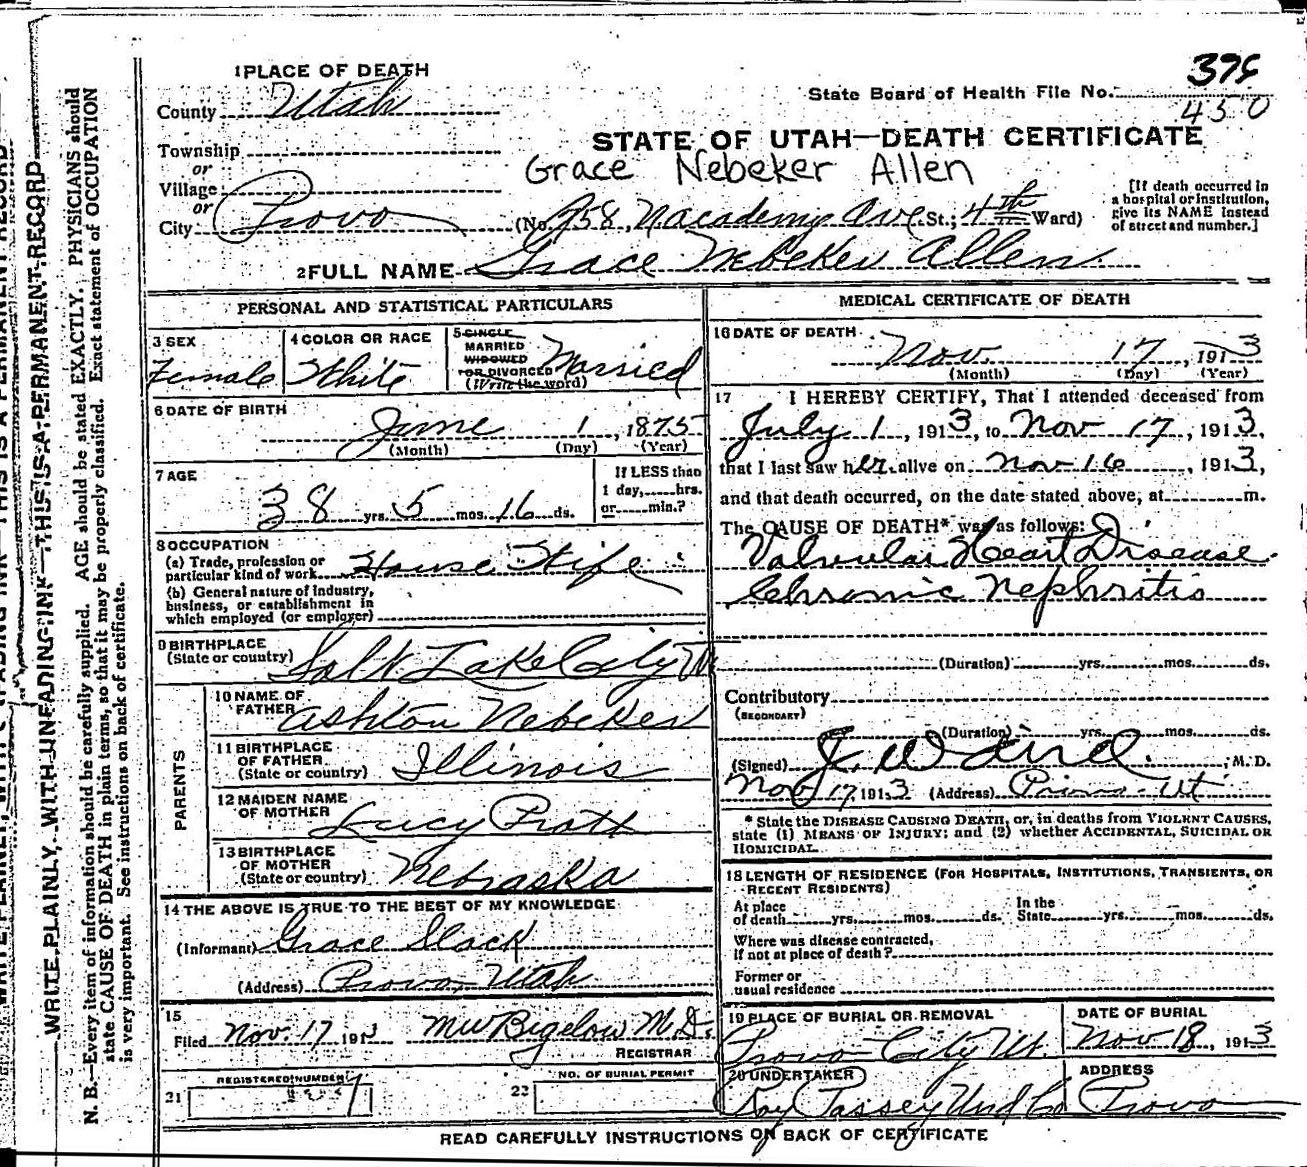 1 PLACE OF DEATH
County Utah
Township
or
Village
or
City Provo
398
State Board of Health File No.
450
STATE OF UTAH—DEATH CERTIFICATE
Grace Nebeker Allen
(No. 758, N academy Ave St.; 4th Ward)
[If death occurred in
a hospital or institution,
give its NAME instead
of street and number.]
2 FULL NAME Grace Nebeker Allen
PERSONAL AND STATISTICAL PARTICULARS
3 SEX
Female
4 COLOR OR RACE
White
5 SINGLE
MARRIED
WIDOWED
OR DIVORCED
(Write the word)
Married
6 DATE OF BIRTH
June 1, 1875
(Month) (Day) (Year)
7 AGE
38 yrs. 5 mos. 16 ds.
If LESS than
1 day, hrs.
or min.?
8 OCCUPATION
(a) Trade, profession or
particular kind of work House Wife
(b) General nature of industry,
business, or establishment in
which employed (or employer)
9 BIRTHPLACE
(State or country) Salt Lake City
PARENTS
10 NAME OF
FATHER Ashton Nebeker
11 BIRTHPLACE
OF FATHER
(State or country) Illinois
12 MAIDEN NAME
OF MOTHER Lucy Pratt
13 BIRTHPLACE
OF MOTHER
(State or country) Nebraska
14 THE ABOVE IS TRUE TO THE BEST OF MY KNOWLEDGE
(Informant) Grace Slack
(Address) Provo, Utah
15
Filed Nov. 17 1913 MW Bigelow M.D.
REGISTRAR
REGISTERED NUMBER
21
NO. OF BURIAL PERMIT
22
MEDICAL CERTIFICATE OF DEATH
16 DATE OF DEATH
Nov. 17, 1913
(Month) (Day) (Year)
17 I HEREBY CERTIFY, That I attended deceased from
July 1, 1913, to Nov 17, 1913,
that I last saw her alive on Nov 16, 1913,
and that death occurred, on the date stated above, at m.
The CAUSE OF DEATH* was as follows:
Valvular Heart Disease
Chronic Nephritis
(Duration) yrs. mos. ds.
Contributory
(SECONDARY)
(Duration) yrs. mos. ds.
(Signed) J. W. Aird M. D.
Nov 17, 1913 (Address) Provo Ut
* State the DISEASE CAUSING DEATH, or, in deaths from VIOLENT CAUSES,
state (1) MEANS OF INJURY; and (2) whether ACCIDENTAL, SUICIDAL OR
HOMICIDAL.
18 LENGTH OF RESIDENCE (FOR HOSPITALS, INSTITUTIONS, TRANSIENTS, OR
RECENT RESIDENTS)
At place
of death yrs. mos. ds.
In the
State yrs. mos. ds.
Where was disease contracted,
if not at place of death?
Former or
usual residence
19 PLACE OF BURIAL OR REMOVAL
Provo City Ut.
DATE OF BURIAL
Nov 18, 1913
20 UNDERTAKER
Und Co
ADDRESS
Provo
READ CAREFULLY INSTRUCTIONS ON BACK OF CERTIFICATE
WRITE PLAINLY, WITH UNFADING INK—THIS IS A PERMANENT RECORD
N. B.—Every item of information should be carefully supplied. AGE should be stated EXACTLY. PHYSICIANS should
state CAUSE OF DEATH in plain terms, so that it may be properly classified. Exact statement of OCCUPATION
is very important. See instructions on back of certificate.